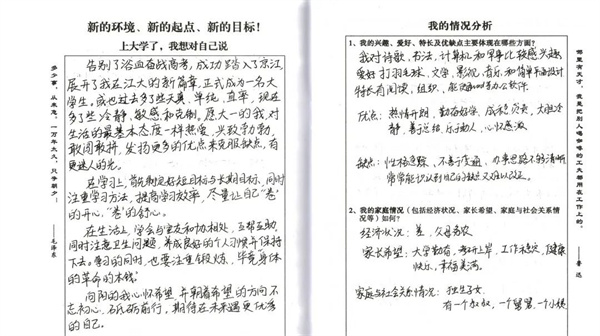 新的环境、新的起点、新的目标!
上大学了，我想对自己说
告别了浴血奋战高考，成功考入了京江，
展开了我在江大的新篇章，正式成为一名大
学生。或也过去多了些天真、单纯、直率，现在
多了些冷静、敏感和克制。愿大一的我对
生活的最基本态度一样热爱，兴致勃勃，
敢闯敢拼，发扬更多的优点来克服缺点，有
更迷人的光。
在学习上，首先制定好短期目标与长期目标，同时
注重学习方法，提高学习效率，尽量让自己“卷”
的开心，“卷”的舒心。
在生活上，学会与室友和协相处，互帮互助，
同时注意卫生问题，养成良好的个人习惯并保持
下去。学习的同时，也要注重锻炼，毕竟身体
是革命的本钱。
向阳的我心怀希望，并朝着希望的方向不
忘初心，砥砺前行，期待在未来遇更优秀
的自己。
多少事，从来急。一万年太久，只争朝夕。
——毛泽东
我的情况分析
1、我的兴趣、爱好、特长及优缺点主要体现在哪些方面？
我对诗歌、书法、计算机和军事比较感兴趣
爱好打羽毛球、文学、影视、音乐、和简单平面设计
特长有阅读、组织、能使用
优点：热情开朗、勤奋好学、成稳负责、大胆冷
静、善于总结、乐于助人、心怀感激
缺点：性格急躁、不善于交通、办事思路不够清晰
常常能认识到自己的缺点又难以改正。
2、我的家庭情况（包括经济状况、家长希望、家庭与社会关系情
况等）如何？
经济状况：差，父母务农
家长希望：大学勤奋，考研上岸，工作稳定，健康
快乐，幸福美满。
家庭与社会关系情况：独生子女
有一个叔叔，一个舅舅，一个小姨
哪里有天才，我是把别人喝咖啡的工夫都用在工作上的。
——鲁迅